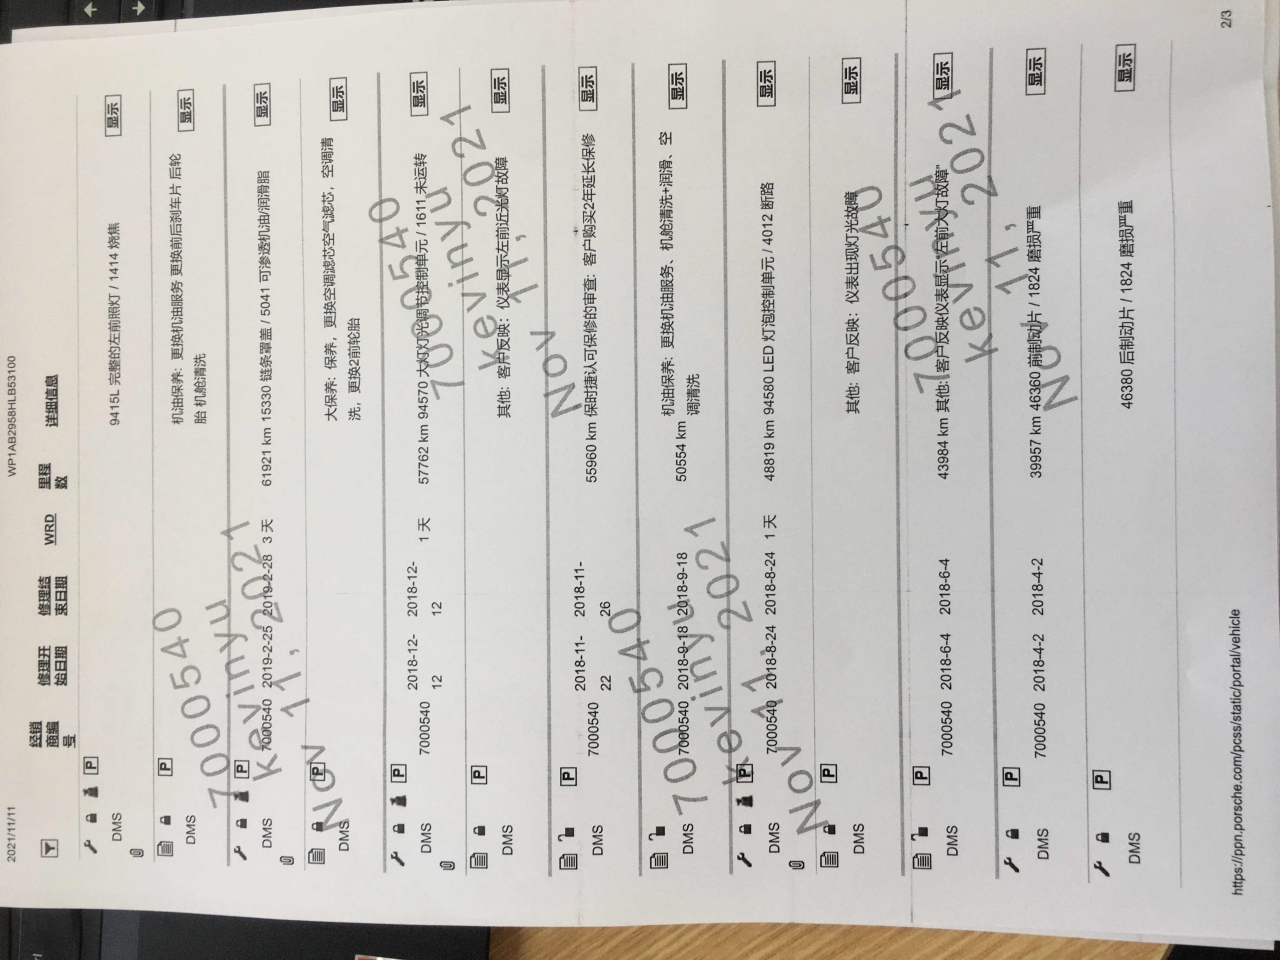 2021/11/11
WP1AB2958HLB53100
经销商编号
修理开始日期
修理结束日期
WRD
里程数
详细信息
DMS
P
9415L 完整的左前照灯 / 1414 烧焦
显示
DMS
P
机油保养：更换机油服务 更换前后刹车片 后轮
胎 机舱清洗
显示
DMS
P
7000540 2019-2-25 2019-2-28 3 天 61921 km 15330 链条罩盖 / 5041 可渗透机油/润滑脂
显示
DMS
P
大保养：保养，更换空调滤芯空气滤芯，空调清
洗，更换2前轮胎
显示
DMS
P
7000540 2018-12-12 2018-12-12 1 天 57762 km 94570 大灯灯光调节控制单元 / 1611 未运转
显示
DMS
P
其他：客户反映：仪表显示左前近光灯故障
显示
DMS
P
7000540 2018-11-22 2018-11-26 55960 km 保时捷认可保修的审查：客户购买2年延长保修
显示
DMS
7000540 2018-9-18 2018-9-18 50554 km 机油保养：更换机油服务、机舱清洗+润滑、空
调清洗
显示
DMS
P
7000540 2018-8-24 2018-8-24 1 天 48819 km 94580 LED 灯泡控制单元 / 4012 断路
显示
DMS
P
其他：客户反映：仪表出现灯光故障
显示
DMS
P
7000540 2018-6-4 2018-6-4 43984 km 其他：客户反映仪表显示"左前大灯故障"
显示
DMS
P
7000540 2018-4-2 2018-4-2 39957 km 46360 前制动片 / 1824 磨损严重
显示
DMS
P
46380 后制动片 / 1824 磨损严重
显示
7000540
kevinyu
Nov 11, 2021
7000540
kevinyu
Nov 11, 2021
7000540
kevinyu
Nov 11, 2021
7000540
kevinyu
Nov 11, 2021
https://ppn.porsche.com/pcss/static/portal/vehicle
2/3